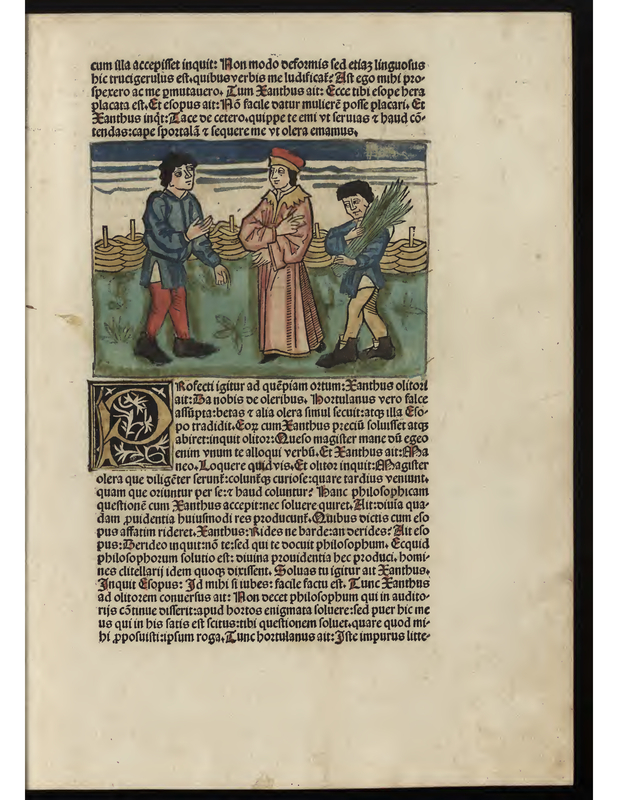 cum illa accepisset inquit: Non modo deformis sed etiaʒ linguosus
hic trucigerulus est. quibus verbis me ludificat? Ast ego mihi pro-
spexero ac me ꝑmutauero. Tum Xanthus ait: Ecce tibi esope hera
placata est. Et esopus ait: Nō facile datur mulierē posse placari. Et
Xanthus inqt: Tace de cetero. quippe te emi vt seruias ⁊ haud cō-
tendas: cape sportalā ⁊ sequere me vt olera emamus.
PRofecti igitur ad quēpiam ortum: Xanthus olitori
ait: Da nobis de oleribus. Hortulanus vero falce
assūpta: betas ⁊ alia olera simul secuit: atqꝫ illa Eso-
po tradidit. Eoꝝ cum Xanthus p̄ciū soluisset atqꝫ
abiret: inquit olitor: Queso magister mane dū egeo
enim vnum te alloqui verbū. Et Xanthus ait: Ma
neo. Loquere quid vis. Et olitor inquit: Magister
olera que diligēter serunt̄: colunt̄qꝫ curiose: quare tardius veniunt.
quam que oriuntur per se: ⁊ haud coluntur? Hanc philosophicam
questionē cum Xanthus accepit: nec soluere quiret. Ait: diuia qua-
dam ꝓuidentia huiusmodi res producunt̄. Quibus dictis cum eso
pus affatim rideret. Xanthus: Rides ne barde: an derides? Ait eso
pus: Derideo inquit: nō te: sed qui te docuit philosophum. Ecquid
philosophorum solutio est: diuina prouidentia hec produci. homi-
nes clitellarij idem quoqꝫ dixissent. Soluas tu igitur ait Xanthus.
Inquit Esopus: Id mihi si iubes: facile factu est. Tunc Xanthus
ad olitorem conuersus ait: Non decet philosophum qui in audito-
rijs cōtinue disserit: apud hortos enigmata soluere: sed puer hic me
us qui in his satis est scitus: tibi questionem soluet. quare quod mi-
hi ꝓposuisti: ipsum roga. Tunc hortulanus ait: Iste impurus litte-